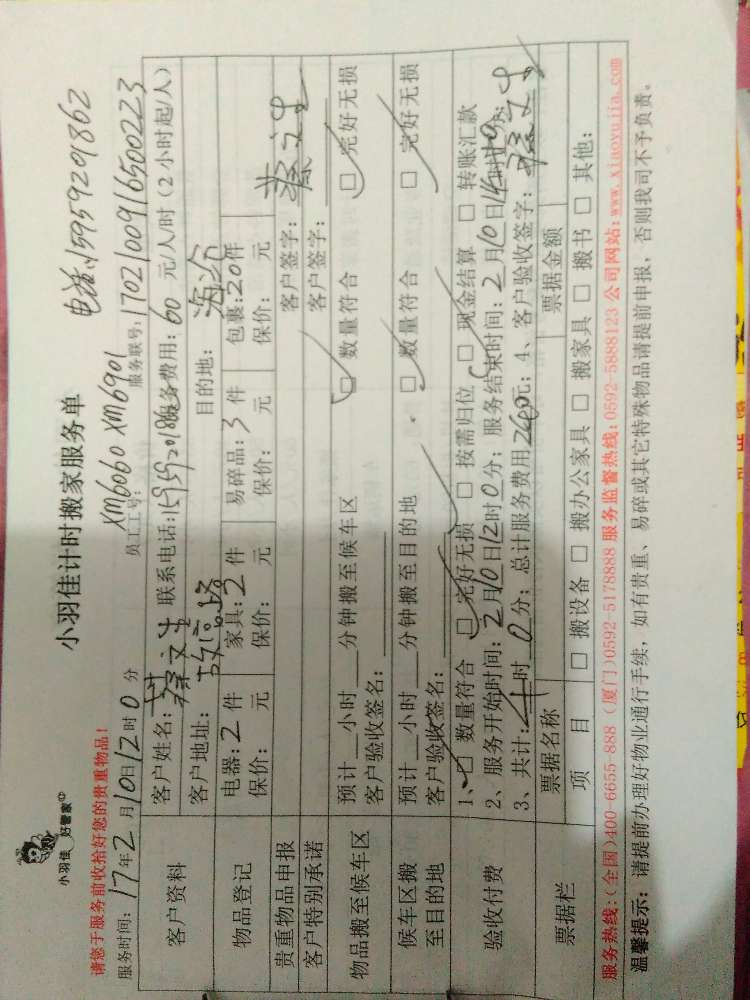 小羽佳 好管家
小羽佳计时搬家服务单
电话:15959201862
请您于服务前收拾好您的贵重物品!
服务时间: 17年2月10日12时0分 员工工号: XM6060 XM6901 服务联号: 1702100916500223
客户资料 客户姓名: 蔡文生 联系电话: 15959201862 服务费用: 60 元/人/时(2小时起/人)
客户地址: 目的地: 海沧
物品登记 电器: 2 件 家具: 2 件 易碎品: 3 件 包裹: 20件
保价: 元 保价: 元 保价: 元 保价: 元
贵重物品申报 客户签字: 蔡文生
客户特别承诺 客户签字:
物品搬至候车区 预计__小时__分钟搬至候车区 □ 数量符合 □ 完好无损
客户验收签名:
候车区搬至目的地 预计__小时__分钟搬至目的地 □ 数量符合 □ 完好无损
客户验收签名:
验收付费 1、□ 数量符合 □ 完好无损 □ 按需归位 □ 现金结算 □ 转账汇款
2、服务开始时间: 2月10日12时0分; 服务结束时间: 2月10日14时 分;
3、共计: 4时0分; 总计服务费用 240元; 4、客户验收签字: 蔡文生
票据栏 票据名称 票据金额
项 目 □ 搬设备 □ 搬办公家具 □ 搬家具 □ 搬书 □ 其他:
服务热线:(全国)400-6655-888 (厦门)0592-5178888 服务监督热线:0592-5888123 公司网站:www.xiaoyujia.com
温馨提示: 请提前办理好物业通行手续, 如有贵重、易碎或其它特殊物品请提前申报, 否则我司不予负责。